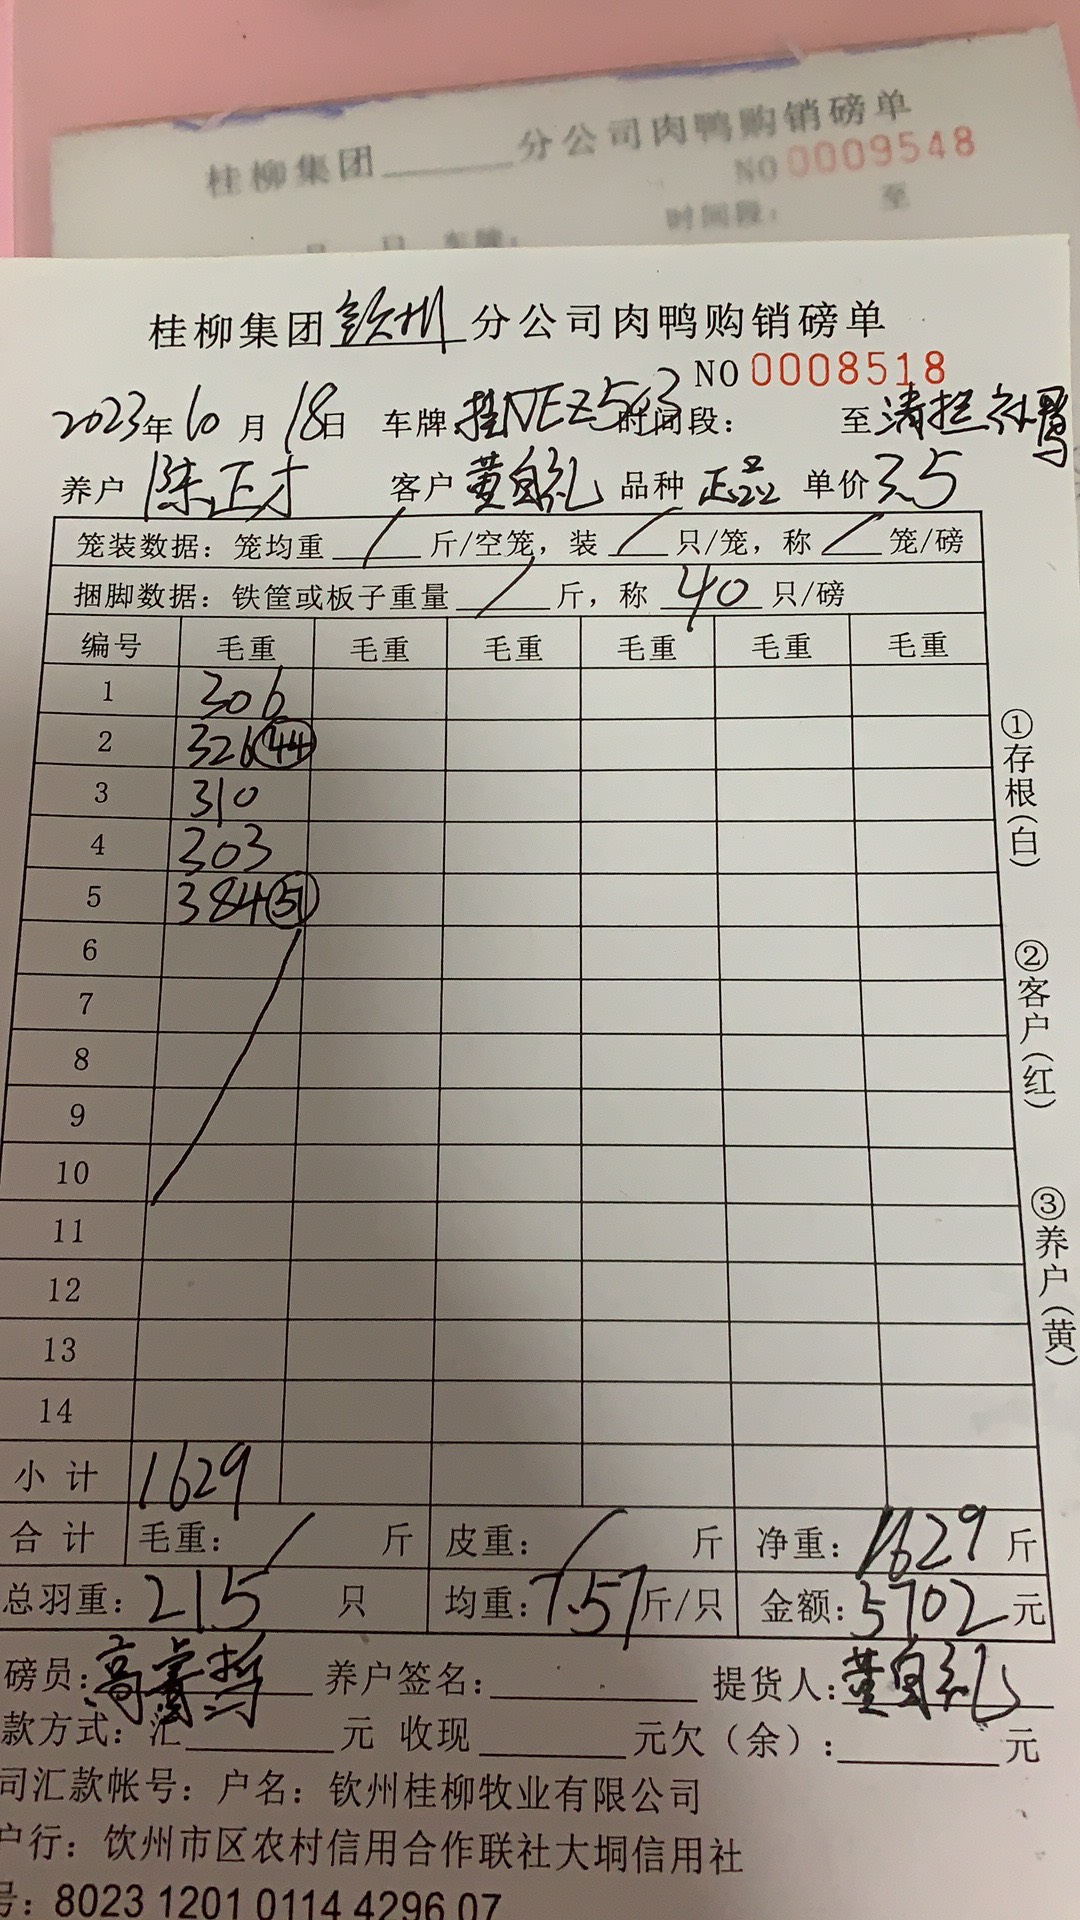 桂柳集团______分公司肉鸭购销磅单
NO 0009548
月 日 车牌: 时间段: 至
桂柳集团钦州分公司肉鸭购销磅单
NO 0008518
2023年10月18日 车牌 桂NEZ563 时间段: 至 清拦
养户 陈正才 客户 黄自礼 品种 正品 单价 3.5
笼装数据: 笼均重 / 斤/空笼, 装 / 只/笼, 称 / 笼/磅
捆脚数据: 铁筐或板子重量 / 斤, 称 40 只/磅
编号 毛重 毛重 毛重 毛重 毛重 毛重
1 306
2 326 44
3 310
4 303
5 384 51
6
7
8
9
10
11
12
13
14
小计 1629
合计 毛重: / 斤 皮重: / 斤 净重: 1629 斤
总羽重: 215 只 均重: 7.57 斤/只 金额: 5702 元
磅员: 高 养户签名: 提货人: 黄自礼
款方式: 汇______元 收现______元欠(余):______元
司汇款帐号: 户名: 钦州桂柳牧业有限公司
户行: 钦州市区农村信用合作联社大垌信用社
号: 8023 1201 0114 4296 07
①存根(白)
②客户(红)
③养户(黄)